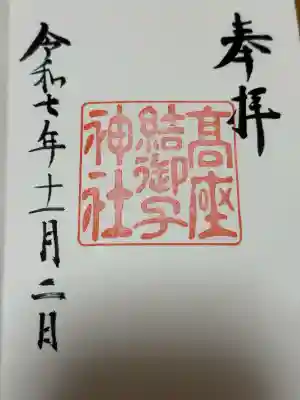 奉拝
高座
結御子
神社
令和七年十一月二日